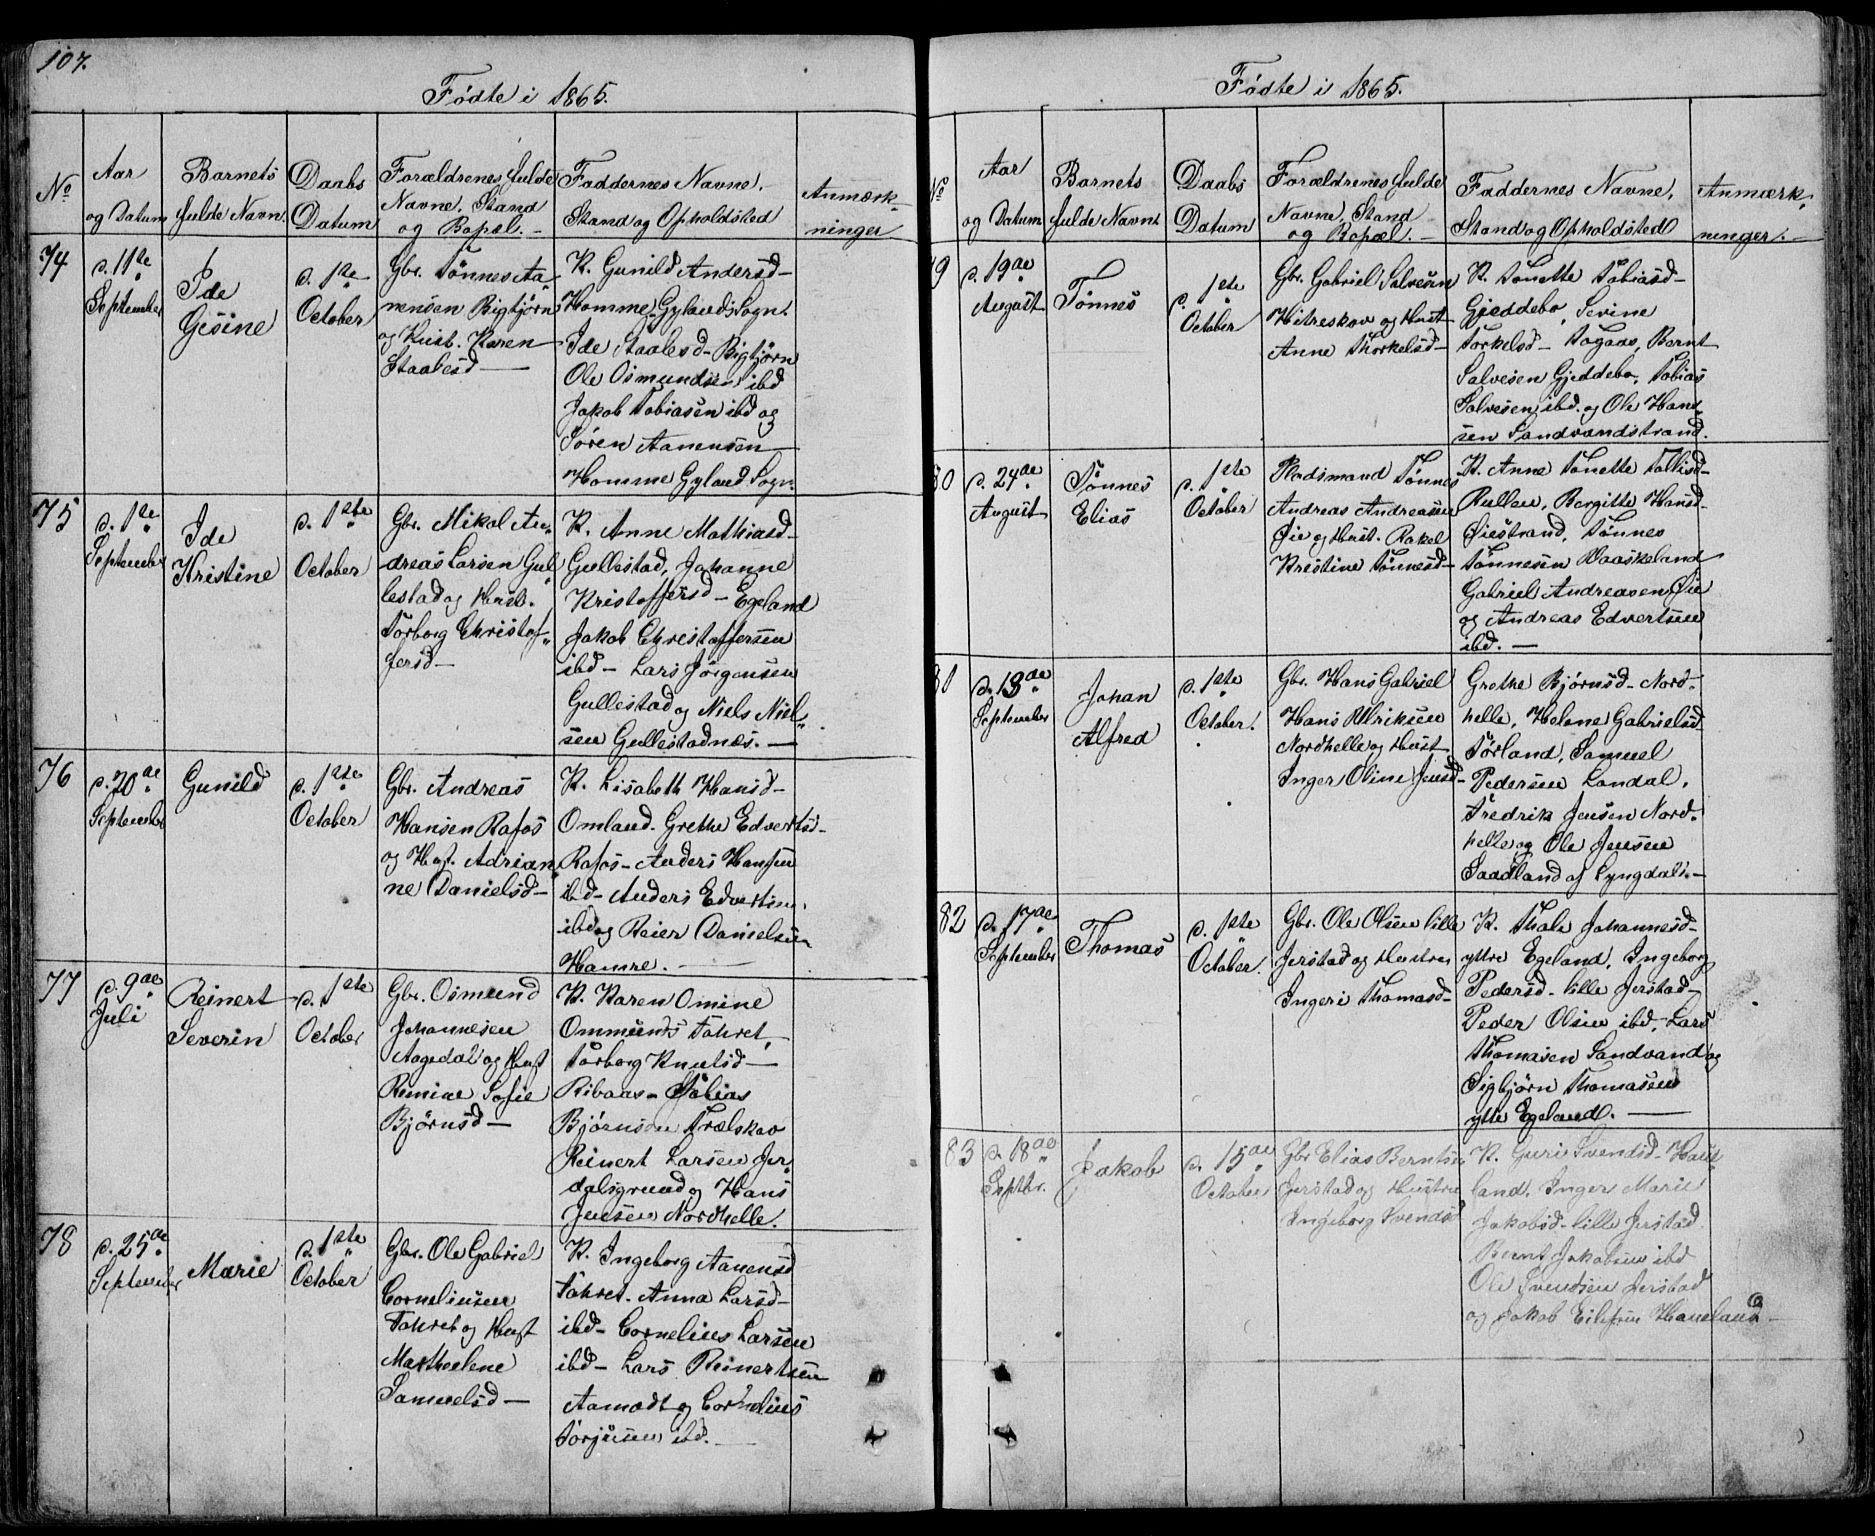 107.
Fødte i 1865.
No
Aar
og Datum
Barnets
fulde Navn.
Daabs
Datum
Forældrenes fulde
Navne, Stand
og Bopæl. -
Faddernes Navne,
Stand og Opholdsted
Anmærk-
ninger
74
d. 11te
September
Ide
Gesine
d. 1ste
October
Gbr. Tønnes Aa-
nensen Bigtjørn
og Hust. Karen
Staalesd -
K. Gunild Andersd -
Homme, Gylands Sogn.
Ide Staalesd - Bigtjørn
Ole Osmundsen ibd
Jakob Tobiasen ibd og
Søren Aanensen -
Homme Gyland Sogn.
75
d. 1te
September
Ide
Kristine
d. 1ste
October
Gbr. Mikal An-
dreas Larsen Gul-
lestad og Hust.
Tørborg Christof-
fersd -
K. Anne Mathiasd -
Gullestad, Johanne
Kristoffersd - Egeland
Jakob Christoffersen
ibd - Lars Jørgensen
Gullestad og Niels Niel-
sen Gullestadnæs. -
76
d. 20de
September
Gunild
d. 1ste
October
Gbr. Andreas
Hansen Rafos
og Hust. Adrian-
ne Danielsd -
K. Lisabeth Hansd -
Omland. Grethe Edvertsd -
Rafos - Anders Hansen
ibd - Anders Edvertsen
ibd og Reier Danielsen
Hamre. -
77
d. 9de
Juli
Reinert
Severin
d. 1ste
October
Gbr. Osmund
Johannesen
Aagedal og Hust
Remine Sofie
Bjørnsd -
K. Karen Omine
Ommunds Fahret,
Tørborg Knutsd -
Ribaas - Tobias
Bjørnsen Trælskav
Reinert Larsen Jer-
dalsgrund og Hans
Jensen Nordhelle.
78
d. 25de
September
Marie
d. 1ste
October
Gbr. Ole Gabriel
Corneliusen
Fahret og Hust
Marthelene
Samuelsd -
K. Ingeborg Aanensd
Fahret. Anna Larsd -
ibd - Cornelius Larsen
ibd - Lars Reinertsen
Aamodt og Cornelius
Torjusen ibd. -
Fødte i 1865.
No
Aar
og Datum
Barnets
fulde Navn.
Daabs
Datum
Forældrenes fulde
Navne, Stand
og Bopæl. -
Faddernes Navne,
Stand og Opholdsted
Anmærk-
ninger. -
9
d. 19de
August
Tønnes
d. 1ste
October
Gbr. Gabriel Salvesen
Hitreskov og Hust
Anne Thorkelsd -
K. Tonette Tobiasd -
Gjeddebo, Sevine
Torkelsd - Togaas, Bernt
Salvesen Gjeddebo, Tobias
Salvesen ibd. og Ole Han-
sen Sandvandstrand.
80
d. 24de
August
Tønnes
Elias
d. 1ste
October
Pladsmand Tønnes
Andreas Andreasen
Øie og Hust. Rakel
Kristine Tønnesd -
K. Anne Tonette Tollisd -
Rullen, Bergitte Hansd -
Øiestrand, Tønnes
Tønnesen Vaaskeland
Gabriel Andreasen Øie
og Andreas Edvertsen
ibd. -
81
d. 13de
September
Johan
Alfred
d. 1ste
October.
Gbr. Hans Gabriel
Hans Ulriksen
Nordhelle og Hust
Inger Oline Jensd -
Grethe Bjørnsd - Nord-
helle, Helene Gabrielsd
Tørland, Samuel
Pedersen Landal,
Fredrik Jensen Nord-
helle og Ole Jensen
Saadland af Lyngdal. -
82
d. 17de
September
Thomas
d. 1ste
October.
Gbr. Ole Olsen lille
Jerstad og Hustru
Ingeri Thomasd -
K. Thale Johannesd -
yttre Egeland, Ingeborg
Pedersd - lille Jerstad -
Peder Olsen ibd, Lars
Thomasen Sandvand og
Sigbjørn Thomasen
ytte Egeland. -
83
d. 18de
Septbr.
Jakob
d. 15de
October
Gbr Elias Berntsen
Jerstad og Hustru
Ingeborg Svendsd
K. Guri Svendsd - Haue-
land, Inger Marie
Jakobsd - lille Jerstad
Bernt Jakobsen ibd
Ole Svendsen Jerstad
og Jakob Eilifsen Haueland -